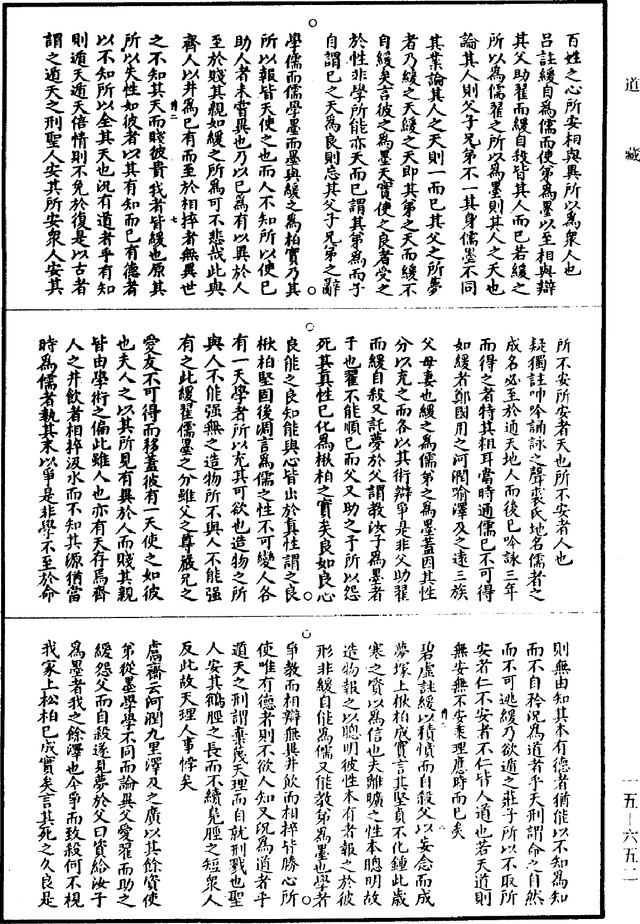 道藏
百姓之心所安相與異所以為衆人也
呂註緩自為儒而使第為墨以至相與辯
其父助翟而緩自殺皆其人而已若緩之
所以為儒翟之所以為墨則其人之天也
論其人則父子兄弟不一其身儒墨不同
其業論其人之天則一而已其父之所夢
者乃緩之天緩之天即其第之天而緩不
自緩矣言彼之為墨天實使之良者受之
於性非學所能亦天而已謂其第為而子
自謂已之天為良則忘其父子兄弟之辭
學儒而儒學墨而墨與緩之為柏實乃其
所以報皆天使之也而人不知所以使已
助人者未嘗異也乃以已為有以異於人
至於賤其親如緩之所為可不悲哉此與
齊人以井為已有而至於相捽者無異世
之不知其天而賤彼貴我者皆緩也原其
所以失性如彼者以其有知而已有德者
以不知所以全其天也況有道者乎有知
則遁天遁天倍情則不免於復是以古者
謂之遁天之刑聖人安其所安衆人安其
所不安所安者天也所不安者人也
疑獨註呻吟誦詠之聲裘氏地名儒者之
成名必至於通天地人而後已吟詠三年
而得之者特其粗耳當時通儒已不可得
如緩者鄭國用之河潤喻澤及之遠三族
父母妻也緩之為儒第之為墨蓋因其性
分以充之而各以其術辯爭是非父助翟
而緩自殺又託夢於父謂教汝子為墨者
予也翟不能順已而父又助之予所以怨
死其真性已化為楸柏之實矣良如良心
良能之良知能與心皆出於真性謂之良
楸柏堅固後凋言為儒之性不可變人各
有一天學者所以充其可欲也造物之所
與人不能強無之造物所不與人不能強
有之此緩翟儒墨之分雖父之尊嚴兄之
愛友不可得而移蓋彼有一天使之如彼
也夫人之以其所見有異於人而賤其親
皆由學術之偏此雖人也亦有天存焉齊
人之井飲者相捽汲水而不知其源猶當
時為儒者執其末以爭是非學不至於命
則無由知其本有德者猶能以不知為知
而不自矜況為道者乎天刑謂命之自然
而不可逃緩乃欲遁之莊子所以不取所
安者仁不安者不仁皆人道也若天道則
無安無不安乘理應時而已矣
碧虛註緩以積憤而自殺父以妄念而成
夢塚上楸柏成實言其堅貞不化鍾此歲
寒之質以為信也夫離曠之性本聰明故
造物報之以聰明彼性本有者報之於彼
形非緩自能為儒又能教第為墨也學者
爭教而相辯無異井飲而相捽皆勝心所
使唯有德者則不欲人知又況為道者乎
遁天之刑謂棄蔑天理而自就刑戮也聖
人安其鶴脛之長而不續鳧脛之短衆人
反此故天理人事悖矣
鬳齋云河潤九里澤及之廣以其餘資使
第從墨學學不同而論異父愛翟而助之
緩怨父而自殺遂見夢於父曰資給汝子
為墨者我之餘澤也今爭而致殺何不視
我冢上松柏已成實矣言其死之久良是
一五－六五二